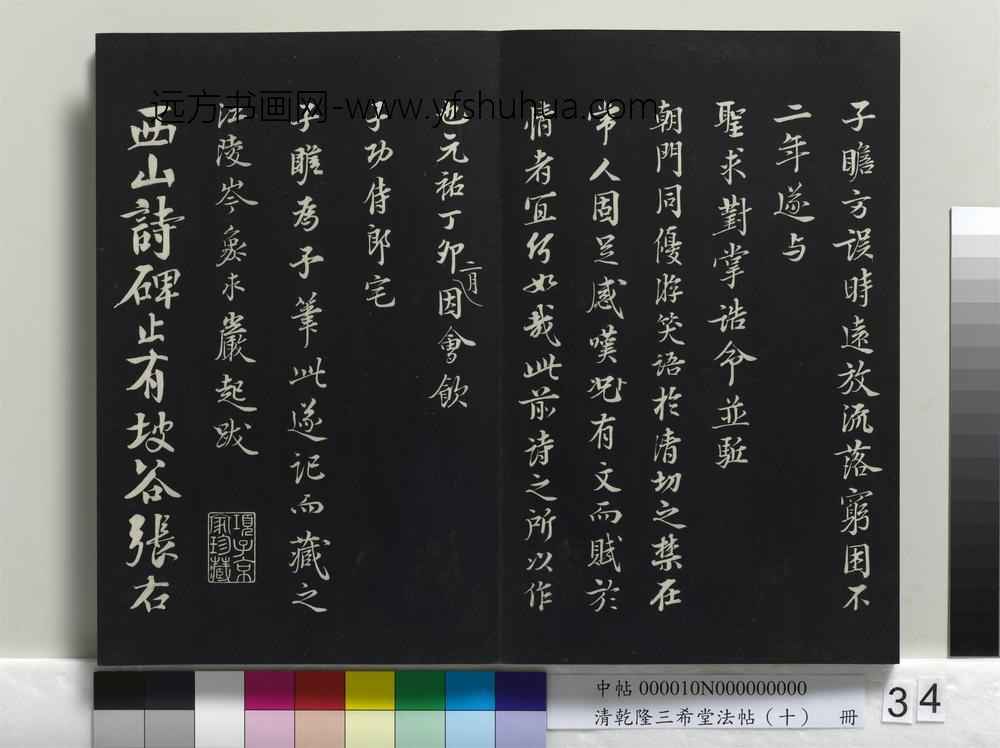 子瞻方誤時遠放流落窮困不
二年遂与
聖求對掌誥令並駈
朝門同優游笑語於清切之禁在
常人固足感嘆况有文而賦於
情者宜何如哉此前诗之所以作
也元祐丁卯二月因會飲
子功侍郎宅
子雎為予筆此遂记而藏之
江陵岑象求巖起跋
項子京
家珍藏
西山詩碑止有坡谷張右
远方书画网-www.yfshuhua.com
中帖 000010N000000000
清乾隆三希堂法帖（十） 冊
34